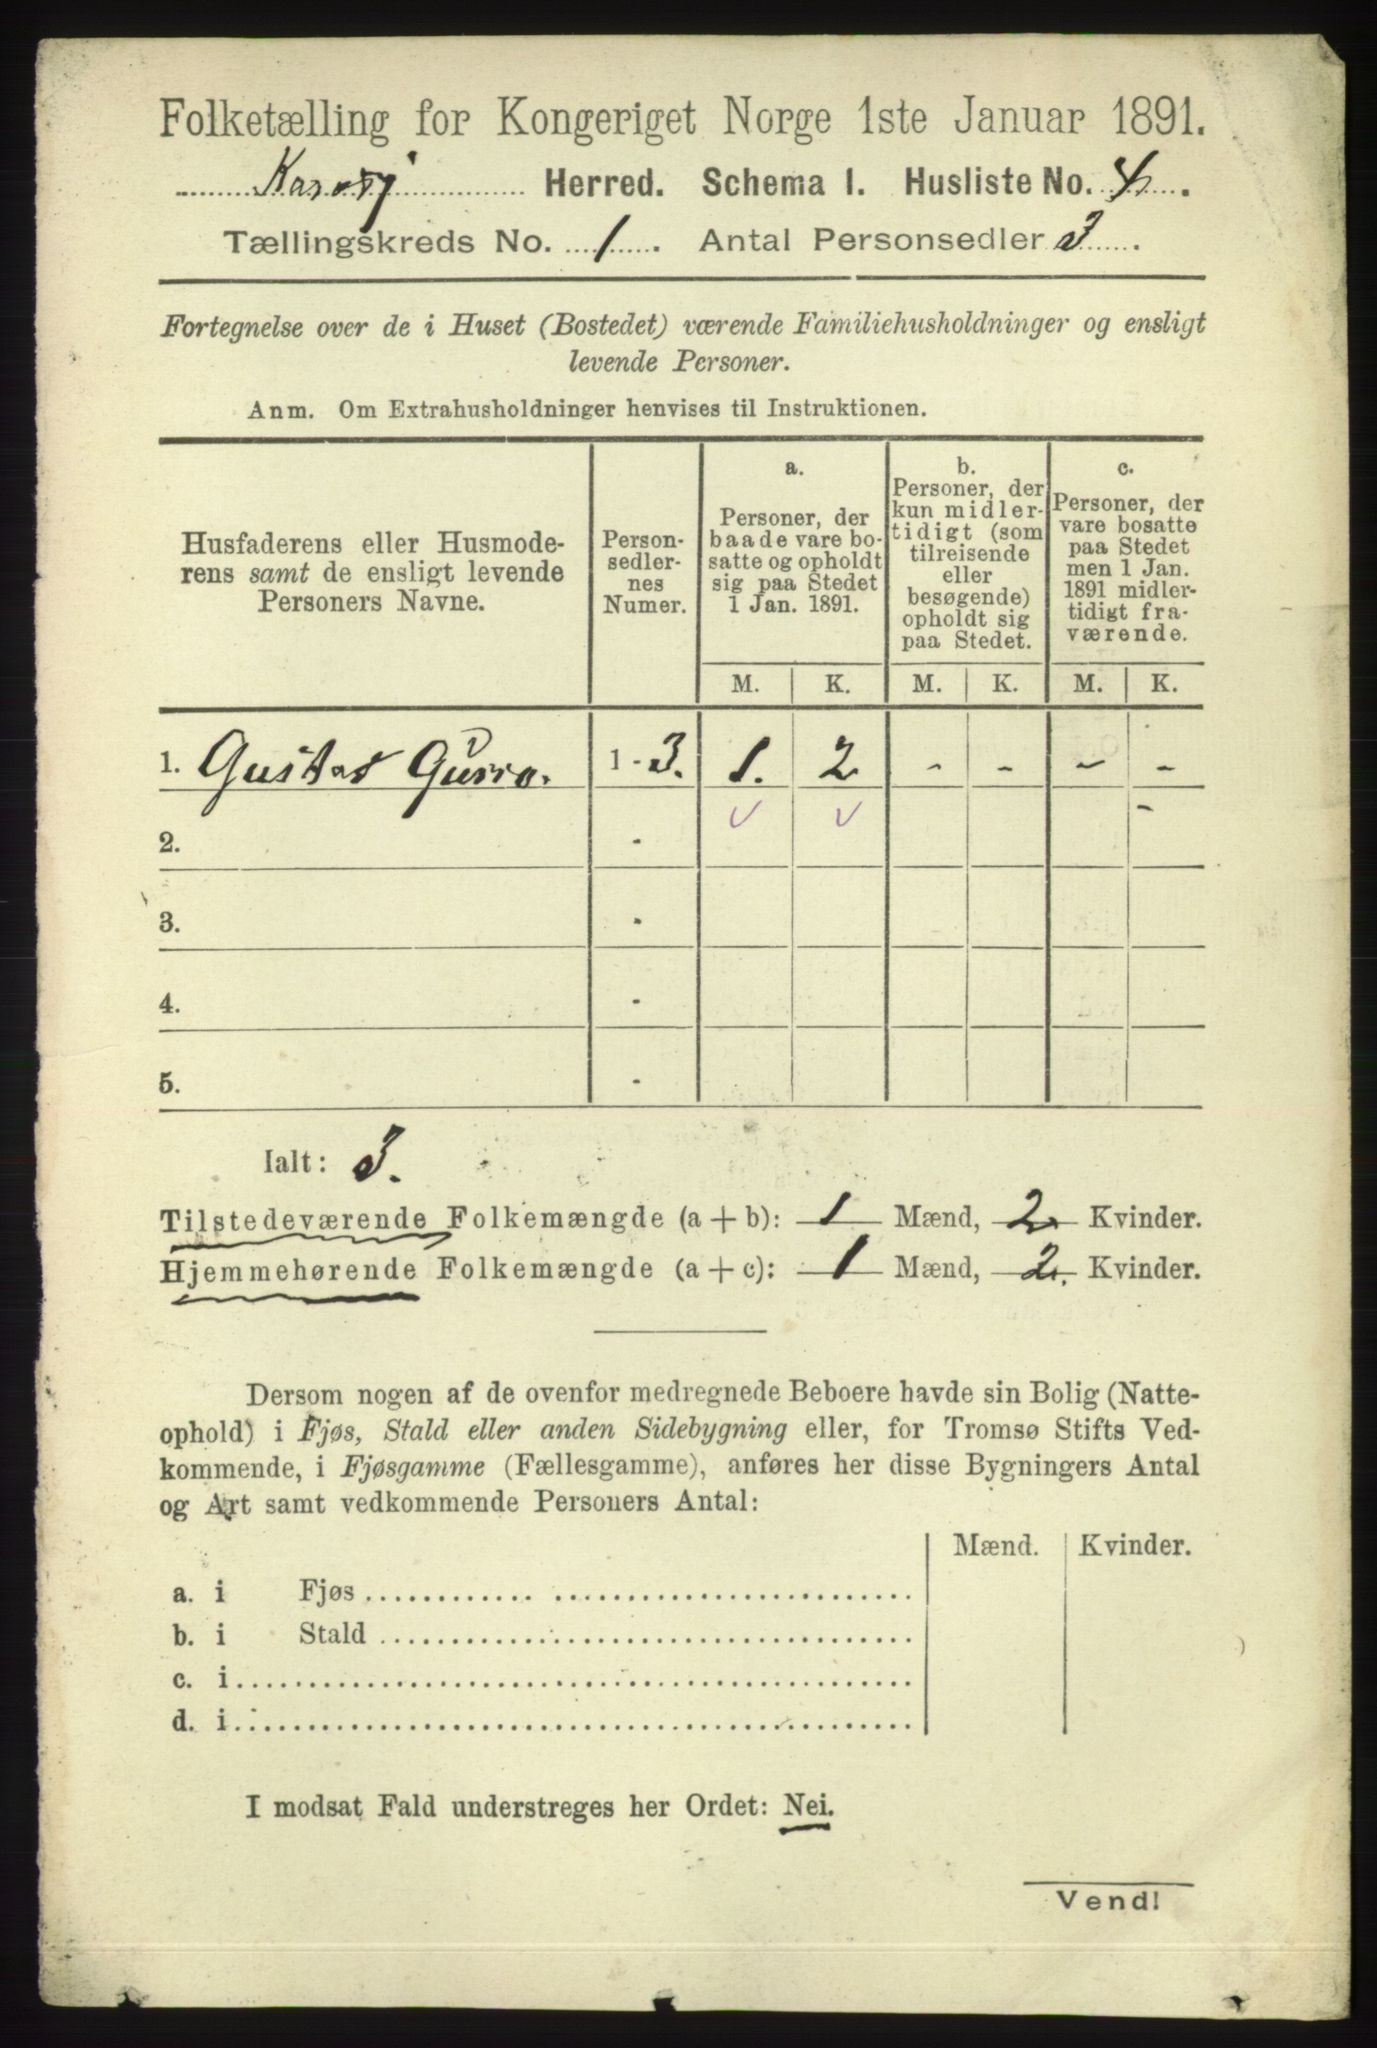 Folketælling for Kongeriget Norge 1ste Januar 1891.
Karasj Herred. Schema I. Husliste No. 4.
Tællingskreds No. 1. Antal Personsedler 3.
Fortegnelse over de i Huset (Bostedet) værende Familiehusholdninger og ensligt
levende Personer.
Anm. Om Extrahusholdninger henvises til Instruktionen.
Husfaderens eller Husmode-
rens samt de ensligt levende
Personers Navne.
Person-
sedler-
nes
Numer.
a.
Personer, der
baade vare bo-
satte og opholdt
sig paa Stedet
1 Jan. 1891.
b.
Personer, der
kun midler-
tidigt (som
tilreisende
eller
besøgende)
opholdt sig
paa Stedet.
c.
Personer, der
vare bosatte
paa Stedet
men 1 Jan.
1891 midler-
tidigt fra-
værende.
M. K. M. K. M. K.
1. Gustav 1-3. 1. 2 - - - -
2. -
3. -
4. -
5. -
Ialt: 3.
Tilstedeværende Folkemængde (a + b): 1 Mænd, 2 Kvinder.
Hjemmehørende Folkemængde (a + c): 1 Mænd, 2. Kvinder.
Dersom nogen af de ovenfor medregnede Beboere havde sin Bolig (Natte-
ophold) i Fjøs, Stald eller anden Sidebygning eller, for Tromsø Stifts Ved-
kommende, i Fjøsgamme (Fællesgamme), anføres her disse Bygningers Antal
og Art samt vedkommende Personers Antal:
Mænd. Kvinder.
a. i Fjøs
b. i Stald
c. i
d. i
I modsat Fald understreges her Ordet: Nei.
Vend!